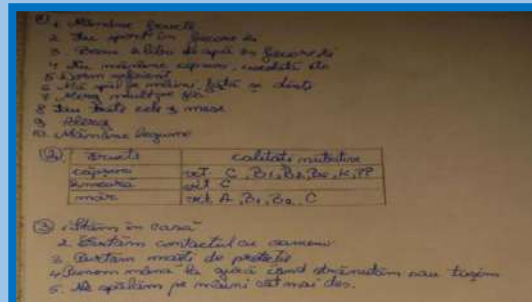 ① 1. Mănânc fructe
2. Fac sport în fiecare zi
3. Beau 2 litri de apă în fiecare zi
4. Nu mănânc chipsuri, ciocolată etc
5. Dorm suficient
6. Mă spăl pe mâini, față și dinți
7. Merg mult pe jos
8. Iau toate cele 3 mese
9. Alerg
10. Mănânc legume
② Fructe calitate nutritive
căpșuna vit. C, B1, B2, B6, K, PP
zmeura vit C
măr vit. A, B1, B2, C
③ 1. Stăm în casă
2. Evităm contactul cu oameni
3. Purtăm măști de protecție
4. Punem mâna la gură când strănutăm sau tușim
5. Ne spălăm pe mâini cât mai des.